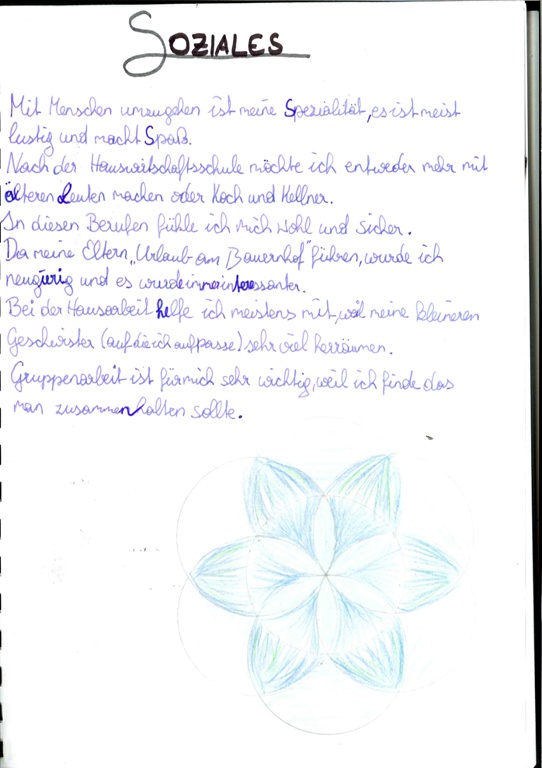 SOZIALES
Mit Menschen umzugehen ist meine Spezialität, es ist meist
lustig und macht Spaß.
Nach der Hauswirtschaftsschule möchte ich entweder mehr mit
älteren Leuten machen oder Koch und Kellner.
In diesen Berufen fühle ich mich wohl und sicher.
Da meine Eltern „Urlaub am Bauernhof" führen, wurde ich
neugierig und es wurde immer interessanter.
Bei der Hausarbeit helfe ich meistens mit, weil meine kleineren
Geschwister (auf die ich aufpasse) sehr viel herräumen.
Gruppenarbeit ist für mich sehr wichtig, weil ich finde das
man zusammenhalten sollte.